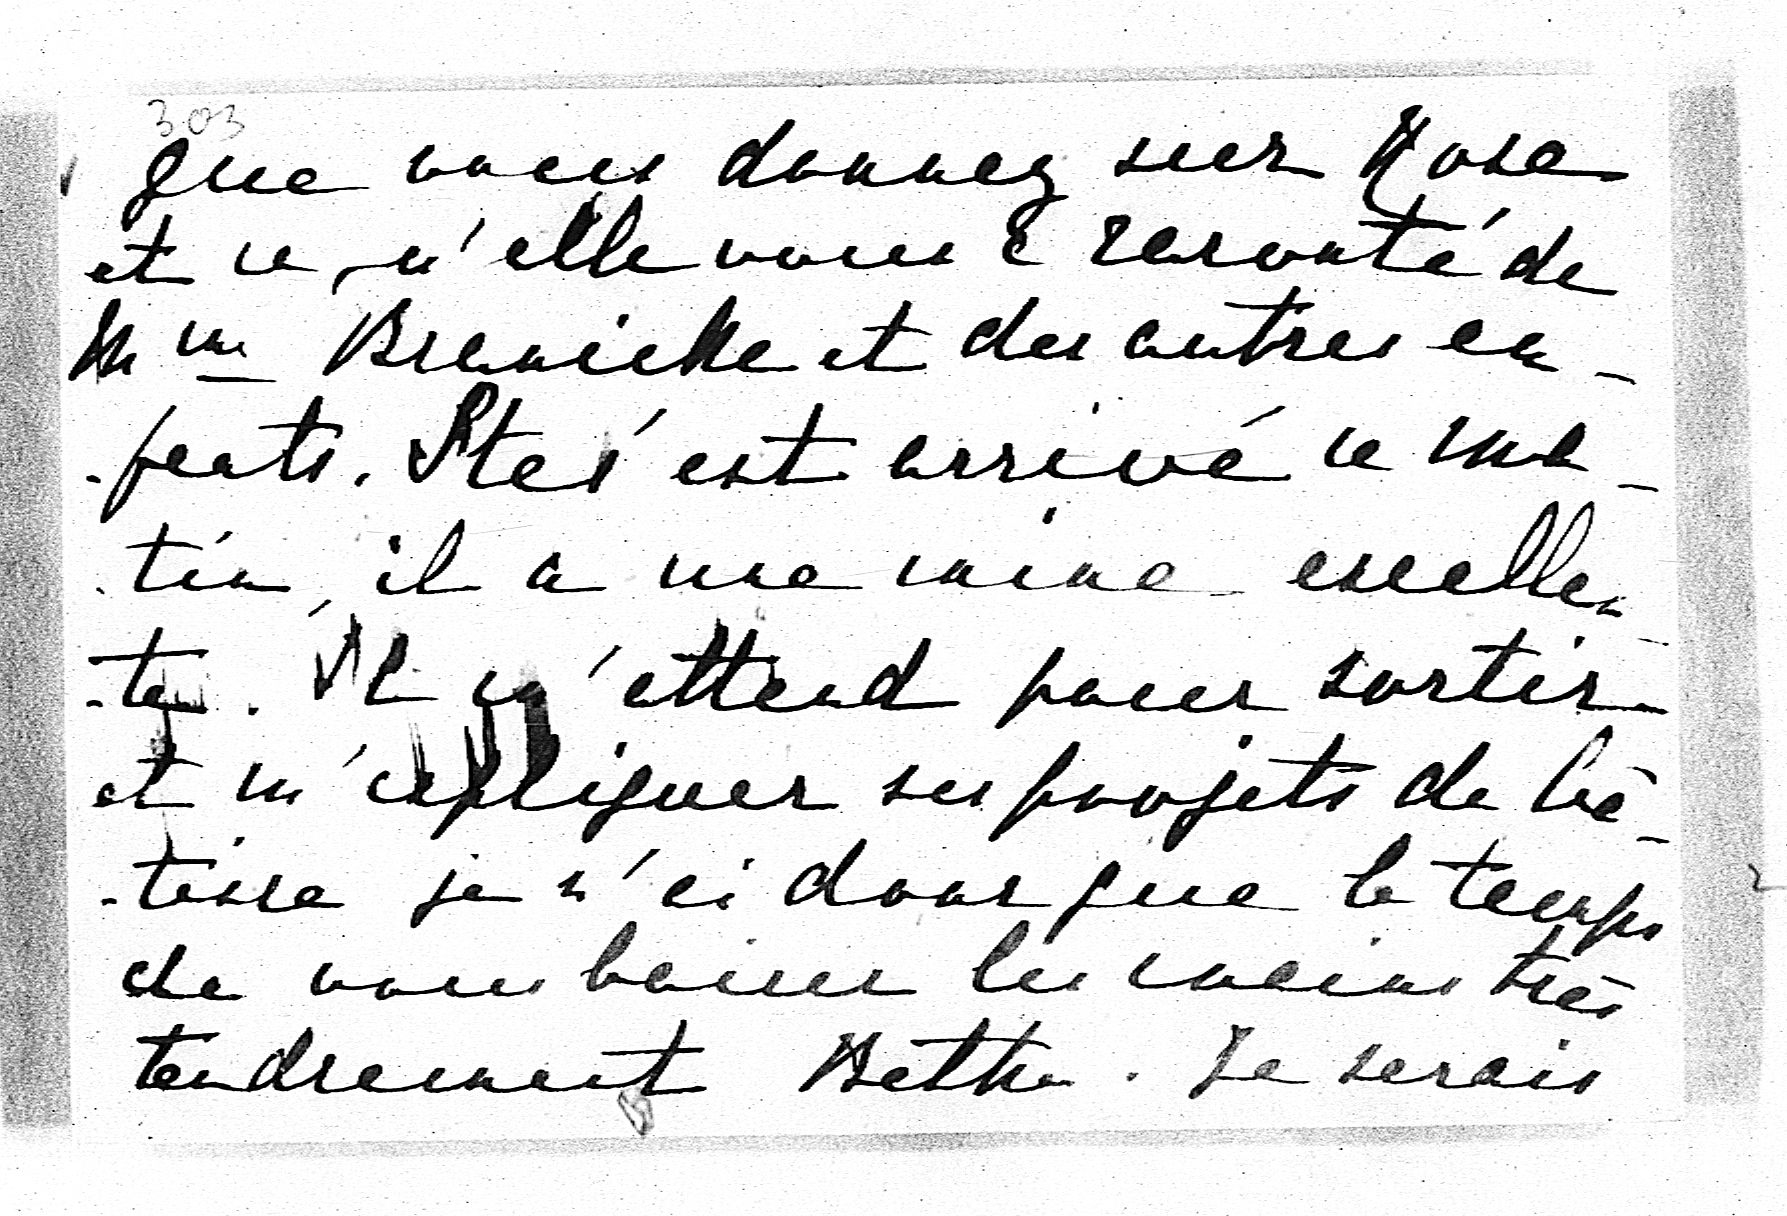 303
que vous donnez sur Rose
et ce qu'elle vous a raconté de
Mme Branicke et des autres en-
-fants. Stas est arrivé ce ma-
-tin, il a une mine excellen-
-te. Il m'attend pour sortir
et m'expliquer ses projets de bâ-
-tisse je n'ai donc que le temps
de vous baiser les mains très
tendrement Bethe. Je serais